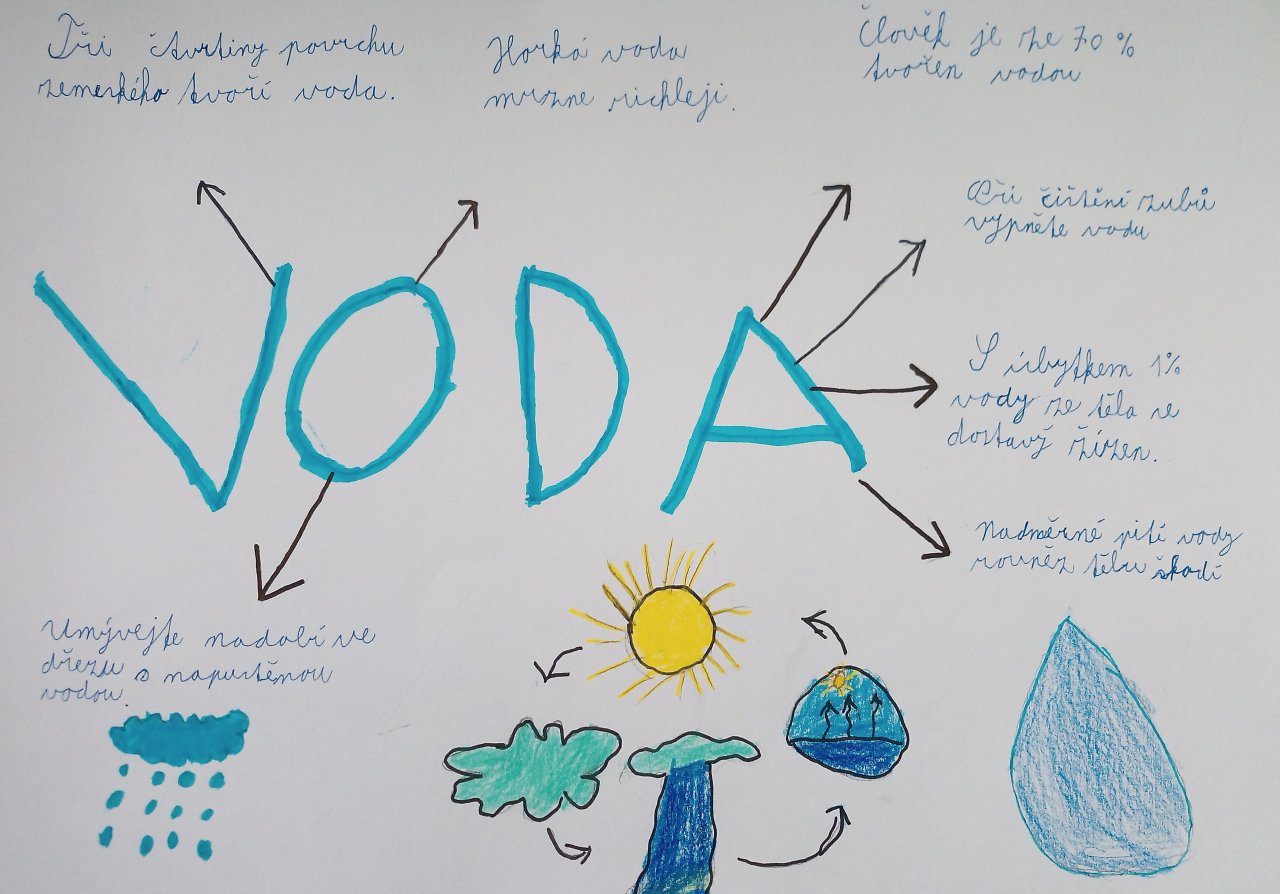 Tři čtvrtiny povrchu
zemského tvoří voda.
Horká voda
mrzne richleji.
Člověk je ze 70 %
tvořen vodou
Při čištění zubů
vypněte vodu
S úbytkem 1%
vody ze těla se
dostavý žízen.
Nadměrné pití vody
rovněz tělu škodí
VODA
Umývejte nadobí ve
dřezu s napustěnou
vodou.